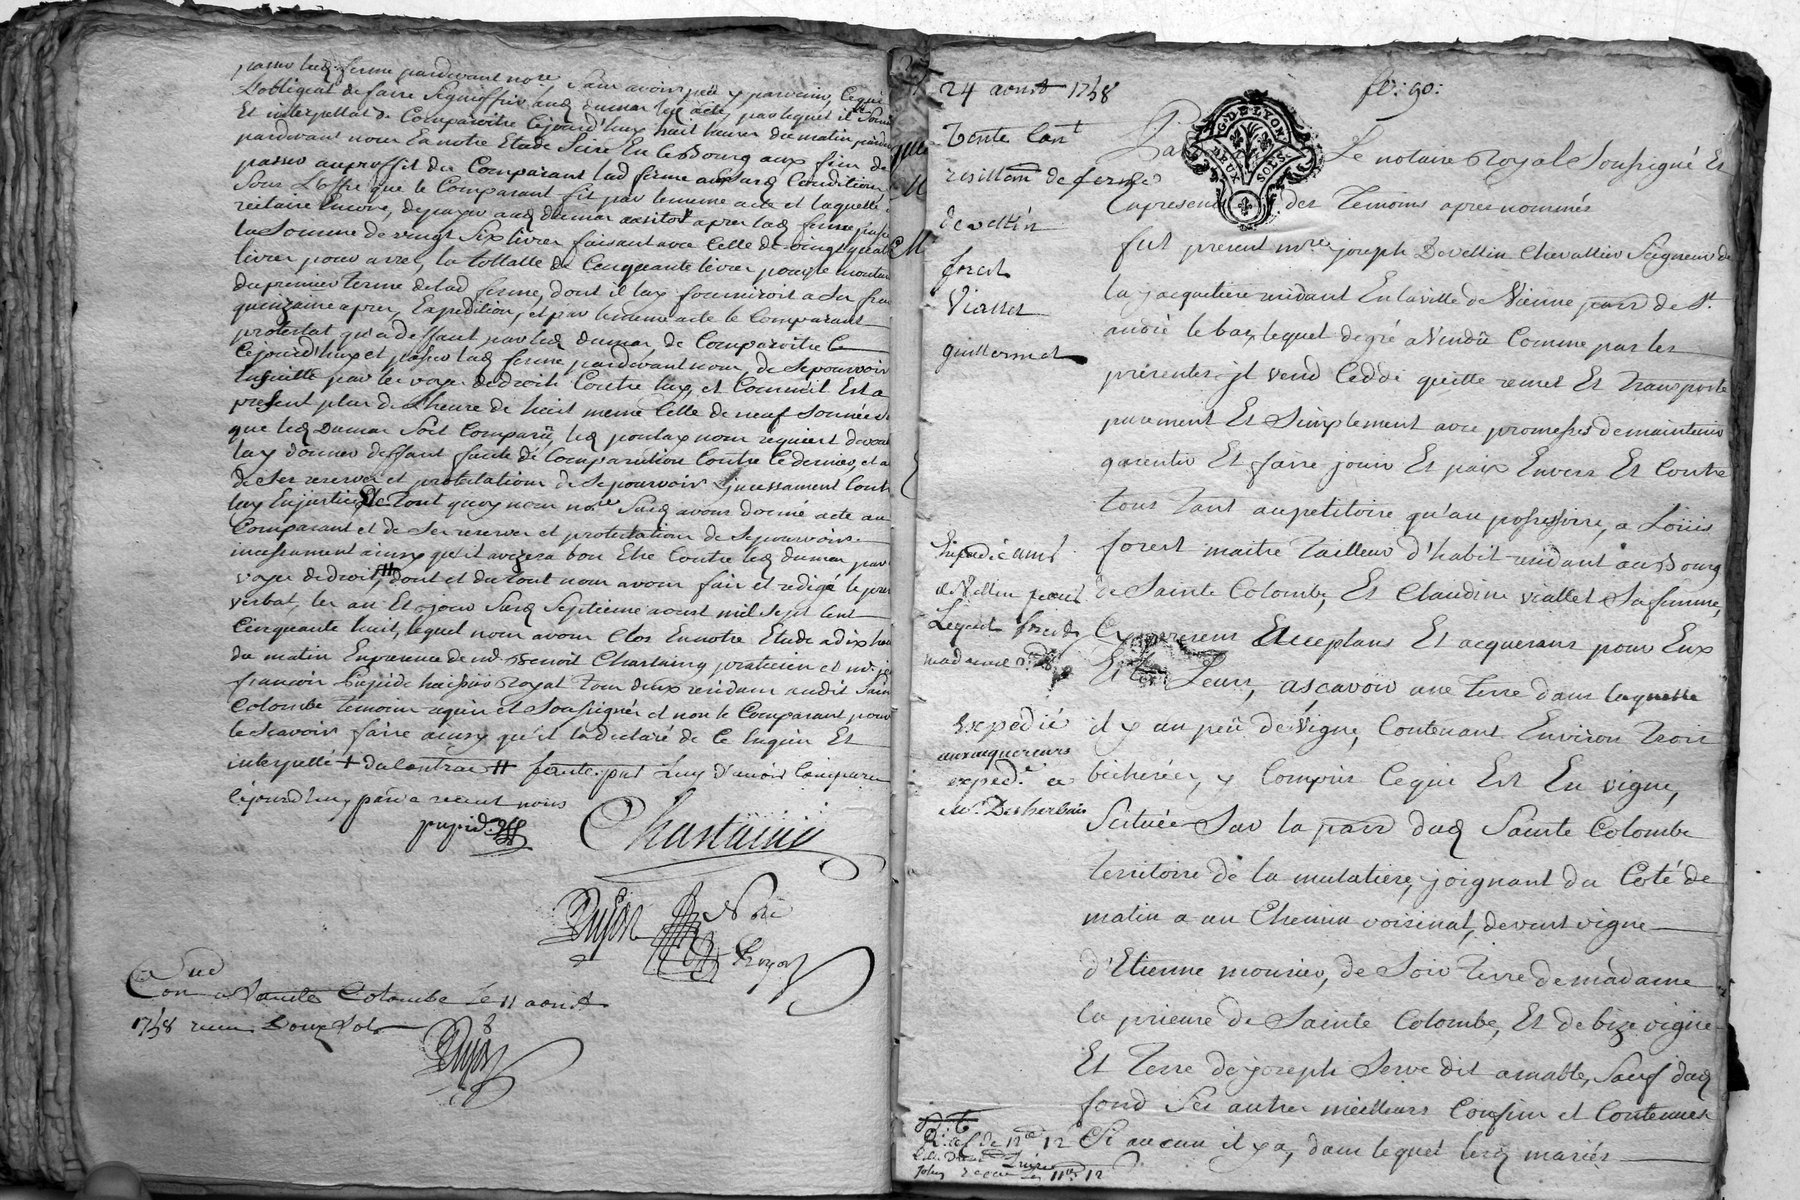 passer lad. ferme pardevant nore, sans avoir peu y parvenir, ce qui
L'obligeat de faire signiffier aud Dumas
Et interpellat de Comparoitre cejourd'huy huit heures du matin
pardevant nous En notre Etude Size En ce Bourg aux fins de
passer au proffit du Comparant lad ferme aux susd Conditions
Sous L'offre que le Comparant fit par le meme acte et laquelle
reitaire Encore, de payer aud dumas aussitot apres lad ferme passée
la Somme de vingt Six livres faisant avec Celle de vingt quatre
livres la tottalle de Cinquante livres pour le montant
du premier terme de lad ferme, dont il luy fourniroit a ses frais
quinzaine apres, Expedition, et par le meme acte le Comparant
protestat qu'a deffaut par led dumas de Comparoitre
Cejourd'huy et passer lad ferme pardevant nous, de se pourvoir
par les voyes de droit Contre luy, et Comme il Est a
present plus de L'heure de huit meme Celle de neuf Sonnée
que led Dumas Soit Comparû, led nous requiert de vou
luy donner deffaut faute de Comparution Contre ce dernier, et a
de Ses reserves et protestations de Se pourvoir jncessament Contre
luy En justice De Tout quoy nous nore Susd avons donné acte au
Comparant et de Ses reserves et protestations de Se pourvoir
incessament ainsy qu'il avizera bon Etre Contre led dumas par
voyes de droit, # dont et du tout nous avons fait et redigé le present
verbal, les an Et jour Susd Septieme aoust mil Sept Cent
Cinquante huit, lequel nous avons Clos En notre Etude a dix heures
du matin En presence de mr Benoit Chastaing, praticien et mr
françois huissier Royal Tous deux residans audit Sainte
Colombe temoins requis et Soussignés et non le Comparant pour
le scavoir faire ainsy qu'il la déclaré de Ce Enquis Et
interpellé + du Contrac # faute par Luy d'avoir Comparu
Cejourd'huy
Chastaing
Dujon
Con a Sainte Colombe le 11 aoust
1758 recu Douze sols
Dujon
24 aoust 1758
fo: 90:
G. DE LYON
DEUX SOLS
Vente Cont
resillaon de ferme
de vellin
forest
Viallet
guillermet
Par Le notaire Royal Soussigné Et
En presence des Temoins apres nommés
fut present mre joseph Devellin Chevallier Seigneur de
la jacquetiere residant En la ville de Vienne parr de St
andré le bas, lequel de gré a Vendû Comme par les
présentes jl vend Cedde quitte remet Et Transporte
purement Et Simplement avec promesses de maintenir
garentir Et faire jouir Et paix Envers Et Contre
Tous Tant au petitoire qu'au possessoire, a Loüis
forest maitre Tailleur d'habit residant au Bourg
de Sainte Colombe, Et Claudine viallet Sa femme,
Cy presens Et acceptans Et acquerans pour Eux
Et Les Leurs, ascavoir une Terre dans laquelle
il y a un peû de vigne, Contenant Environ Trois
bicherées, y Compris Ce qui Est En vigne,
Scituée Sur la parr dud Sainte Colombe
territoire de la mulatiere, joignant du Coté de
matin a un Chemin voisinal, de vent vigne
d'Etienne mounier, de Soir Terre de madame
la prieure de Sainte Colombe, Et de bize vigne
Et Terre de joseph Serve dit amable, Sauf dud
fond Ses autres meilleurs Confins et Contenues
Si aucun il y a, dans lequel lesd mariés
Expedié a mr
de Vellin
forest
Expedié
aux acquereurs
expedé a
Mr. Desherbais